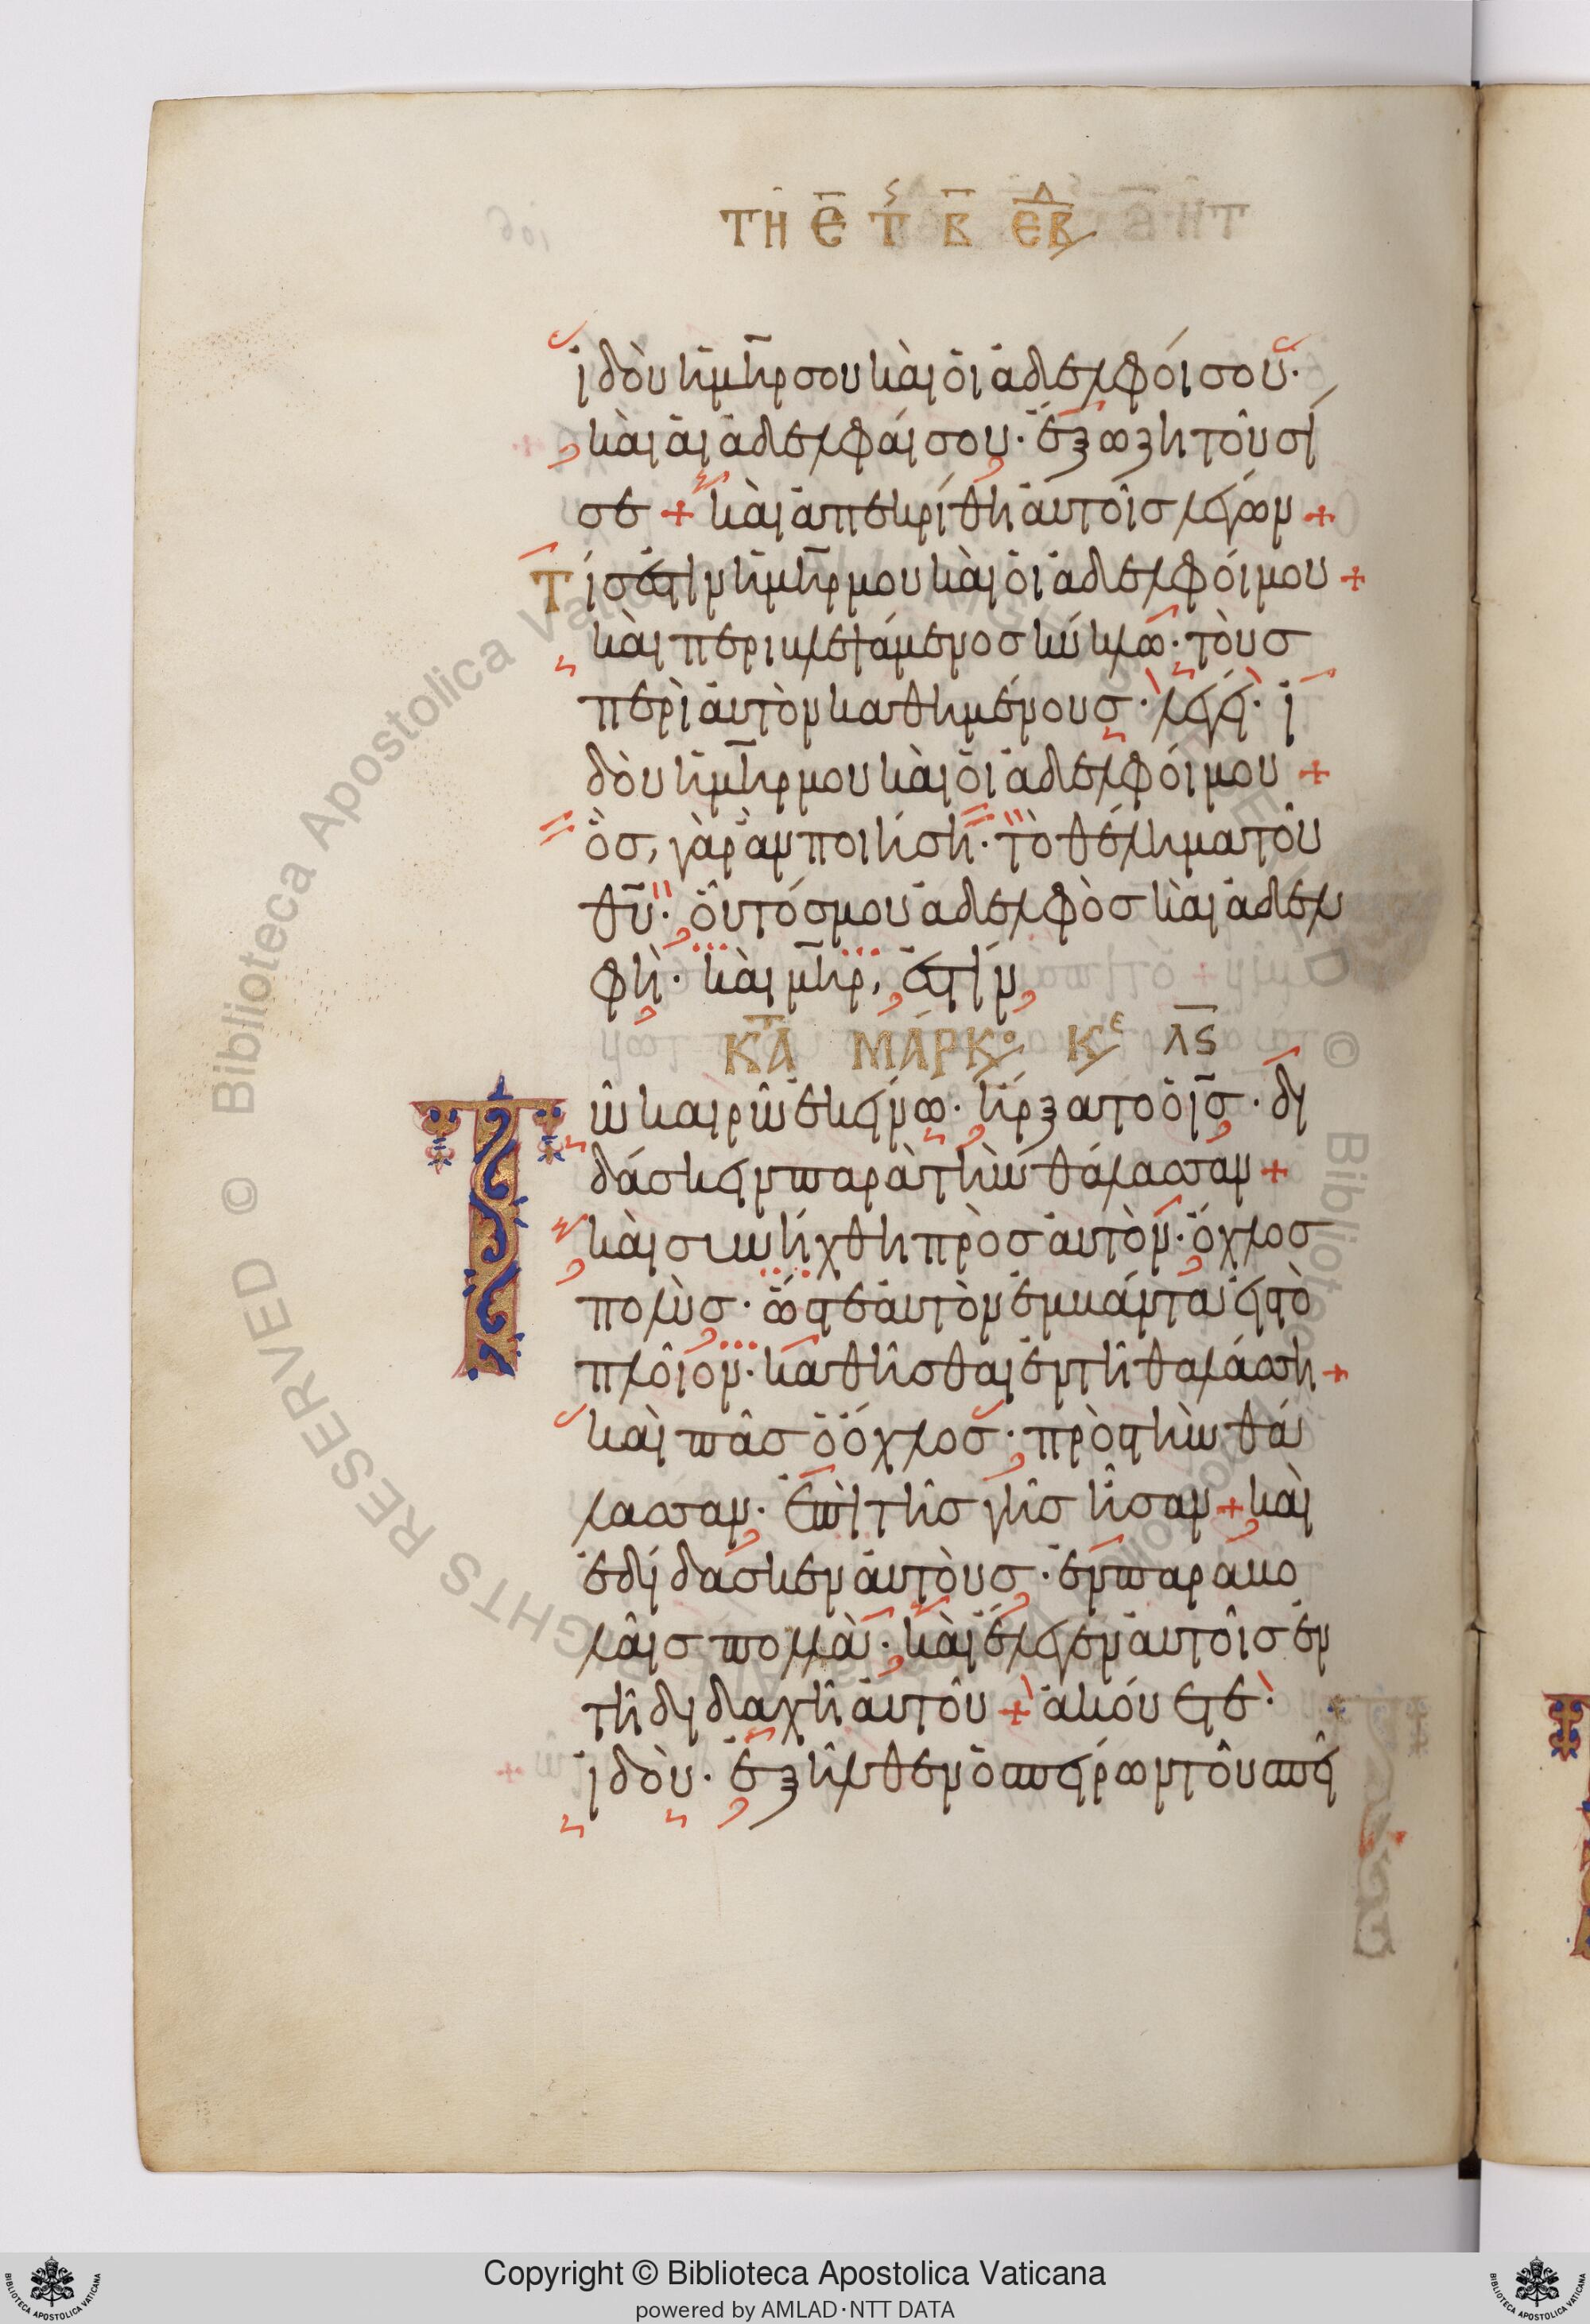 ΤΗ Ε̅ Τ Β̅ ΕΒΔ
ἰδοὺ ἡ μ̅η̅ρ σου καὶ οἱ ἀδελφοί σου·
καὶ αἱ ἀδελφαί σου· ἔξω ζητοῦσί
σε + καὶ ἀπεκρίθη αὐτοῖς λέγων +
Τίς ἐστιν ἡ μ̅η̅ρ μου καὶ οἱ ἀδελφοί μου +
καὶ περιβλεψάμενος κύκλω· τοὺς
περὶ αὐτὸν καθημένους· λέγει· ἰ
δοὺ ἡ μ̅η̅ρ μου καὶ οἱ ἀδελφοί μου +
ὃς, γὰρ ἂν ποιήση· τὸ θέλημα τοῦ
θ̅υ̅· οὗτός μου ἀδελφὸς καὶ ἀδελ
φὴ· καὶ μ̅η̅ρ, ἐστίν
ΚΑΤ ΜΑΡΚΟ ΚΕ Λς
Τῶ καιρῶ ἐκείνω· ἤρξατο ὁ ι̅ς̅· δι
δάσκειν παρὰ τὴν θάλασσαν +
καὶ συνήχθη πρὸς αὐτὸν· ὄχλος
πολὺς· ὥστε αὐτὸν ἐμβάντα εἰς τὸ
πλοῖον· καθῆσθαι ἐν τῆ θαλάσση +
καὶ πᾶς ὁ ὄχλος· πρὸς τὴν θά
λασσαν· ἐπὶ τῆς γῆς ἦσαν + καὶ
ἐδίδασκεν αὐτοὺς· ἐν παραβο
λαῖς πολλὰ· καὶ ἔλεγεν αὐτοῖς ἐν
τῆ διδαχῆ αὐτοῦ + ἀκούετε·
ἰδοὺ· ἐξῆλθεν ὁ σπείρων τοῦ σπεῖ
© Biblioteca Apostolica Vaticana
Copyright © Biblioteca Apostolica Vaticana
powered by AMLAD·NTT DATA